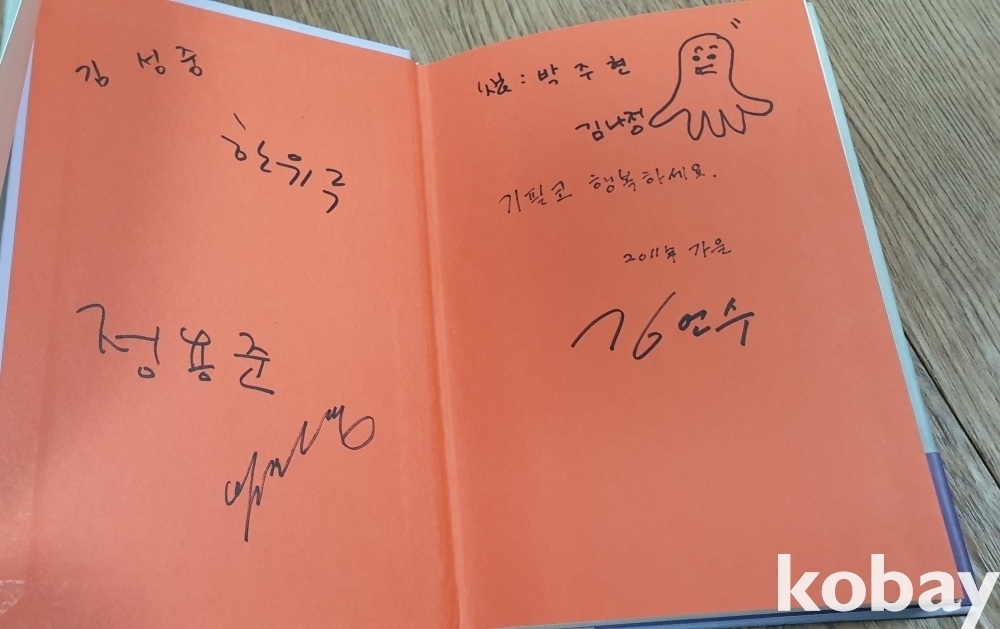 김 성 중
한유주
정용준
쌤 : 박 주 현
김나정
기필코 행복하세요.
2011年 가을
김연수
kobay